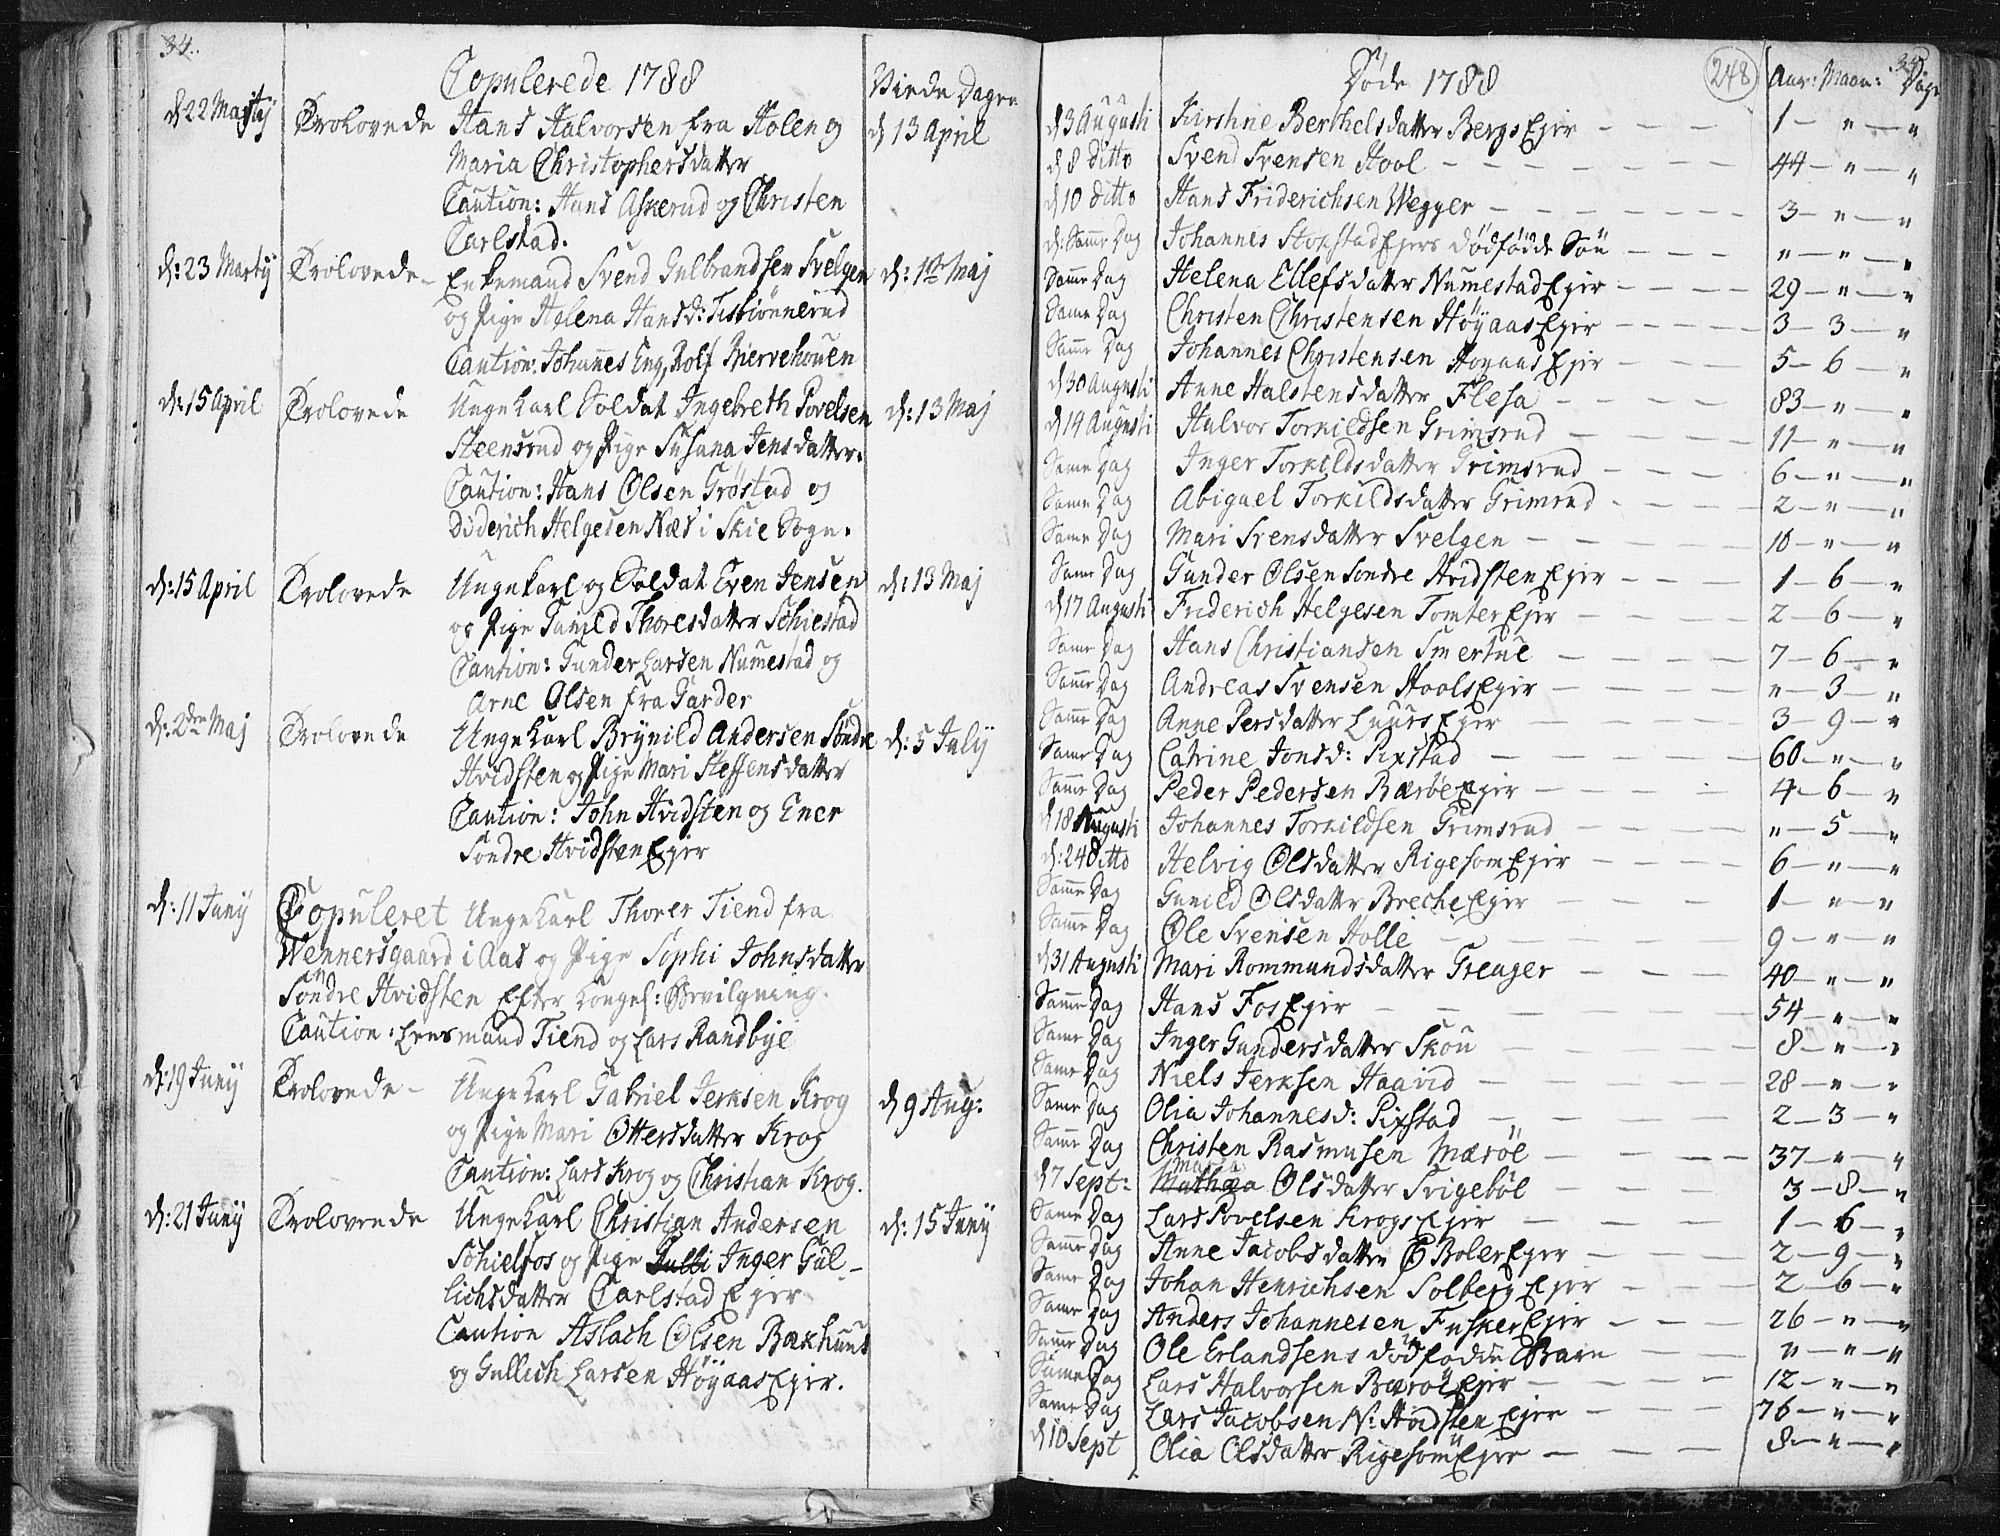 34.
Copulerede 1788
Viede Dagen
d 22 Martij Trolovede Hans Halvorsen fra Holen og d 13 April
Maria Christophersdatter
Caution: Hans Askerud og Christen
Carlstad.
d: 23 Martij Trolovede- Enkemand Svend Gulbrandsen Svelgen d: 1te Maj
og Pige Helena Hansd: Tisbiönnerud
Caution: Johannes Eng, Rolf Biervehouen
d: 15 April Trolovede Ungekarl Soldat Ingebreth Povelsen d: 13 Maj
Steensrud og Pige Susana Jensdatter.
Caution: Hans Olsen Gröstad og
Diderich Helgesen Næs i Skie Sogn.
d: 15 April Trolovede Ungekarl og Soldat Even Jensen d: 13 Maj
og Pige Gunild Thoresdatter Schiestad
Caution: Gunder Larsen Numestad og
Arne Olsen fra Garder
d: 2den Maj Trolovede Ungekarl Brynild Andersen Söndre d: 5 July
Hvidsten og Pige Mari Steffensdatter
Caution: John Hvidsten og Ener
Söndre Hvidsten Ejer
d: 11 Junij Copuleret Ungekarl Thorer Tiend fra
Wennersgaard i Aas og Pige Sophi Johnsdatter
Söndre Hvidsten Efter Kongel: Bevilgning.
Caution: Lensmand Tiend og Lars Randbye
d: 19 Junij Trolovede- Ungekarl Gabriel Jerksen Krog d 9 Aug:
og Pige Mari Ottersdatter Krog
Caution: Lars Krog og Christian Krog.
d: 21 Junij Trolovende Ungekarl Christian Andersen d: 15 Junij
Schielfos og Pige Gulli Inger Gul-
lichsdatter Carlstad Ejer
Caution Aslach Olsen Bækhuus
og Gullich Larsen Höyaas Ejer.
Döde 1788
248
Aar: Maan: Dage
d 3 Augusti Kirstine Berthelsdatter Bergs Ejer - - - 1 - " - "
d 8 ditto Svend Svensen Hool - - - 44 - " - "
d 10 ditto Hans Friderichsen Wegger - - - 3 - " - "
d: Samme Dag Johannes Stopstad Ejers dödfödde Sön " - " - "
Samme Dag Helena Ellefsdatter Numestad Ejer - - - 29 - " - "
Same Dag Christen Christensen Höyaas Ejer - - - 3 - 3 - "
Samme Dag Johannes Christensen Höyaas Ejer - - - 5 - 6 - "
d 30 Augusti Anne Halstensdatter Flesa - - - 83 - " - "
d 14 Augusti Halvor Torkildsen Grimsrud - - - 11 - " - "
Same Dag Inger Torkildsdatter Grimsrud - - - 6 - " - "
Same Dag Abigael Torkildsdatter Grimrud - - - 2 - " - "
Same Dag Mari Svensdatter Svelgen - - - 10 - " - "
Same Dag Gunder Olsen Sondre Hvidsten Ejer - - - 1 - 6 - "
d 17 Augusti Friderich Helgesen Tomter Ejer - - - 2 - 6 - "
Same Dag Hans Christiansen Smertue - - - 7 - 6 - "
Samme Dag Andreas Svensen Hools Ejer - - - " - 3 - "
Samme Dag Anne Persdatter Luurs Ejer - - - 3 - 9 - "
Same Dag Catrine Jonsd: Pixstad - - - 60 - " - "
Samme Dag Peder Pedersen Bæröe Ejer - - - 4 - 6 - "
d 18 Augusti Johannes Torkildsen Grimsrud - - - " - 5 - "
d: 24 Ditto Helvig Olsdatter Rigesom Ejer - - - 6 - " - "
Samme Dag Gunild Olsdatter Breche Ejer - - - 1 - " - "
Samme Dag Ole Svensen Holle - - - 9 - " - "
d 31 Augusti Mari Rommundsdatter Greager - - - 40 - " - "
Samme Dag Hans Fos Ejer - - - 54 - " - "
Same Dag Inger Gundersdatter Skou - - - 8 - " - "
Same Dag Niels Jerksen Haavid - - - 28 - " - "
Same Dag Olia Johannesd: Pixstad - - - 2 - 3 - "
Samme Dag Christen Rasmusen Mæröe - - - 37 - " - "
d 7 Sept: Maria Olsdatter Svigeböl - - - 3 - 8 - "
Same Dag Lars Povelsen Krogs Ejer - - - 1 - 6 - "
Samme Dag Anne Jacobsdatter Boler Ejer - - - 2 - 9 - "
Same Dag Johan Henrichsen Solberg Ejer - - - 2 - 6 - "
Same Dag Anders Johannesen Fusker Ejer - - - 26 - " - "
Samme Dag Ole Erlandsens dödfödde Barn - - - " - " - "
Same Dag Lars Halvorsen Bæröe Ejer - - - 12 - " - "
Same Dag Lars Jacobsen N: Hvidsten Ejer - - - 76 - " - "
d 10 Sept Olia Olsdatter Rigesom Ejer - - - 8 - " - "